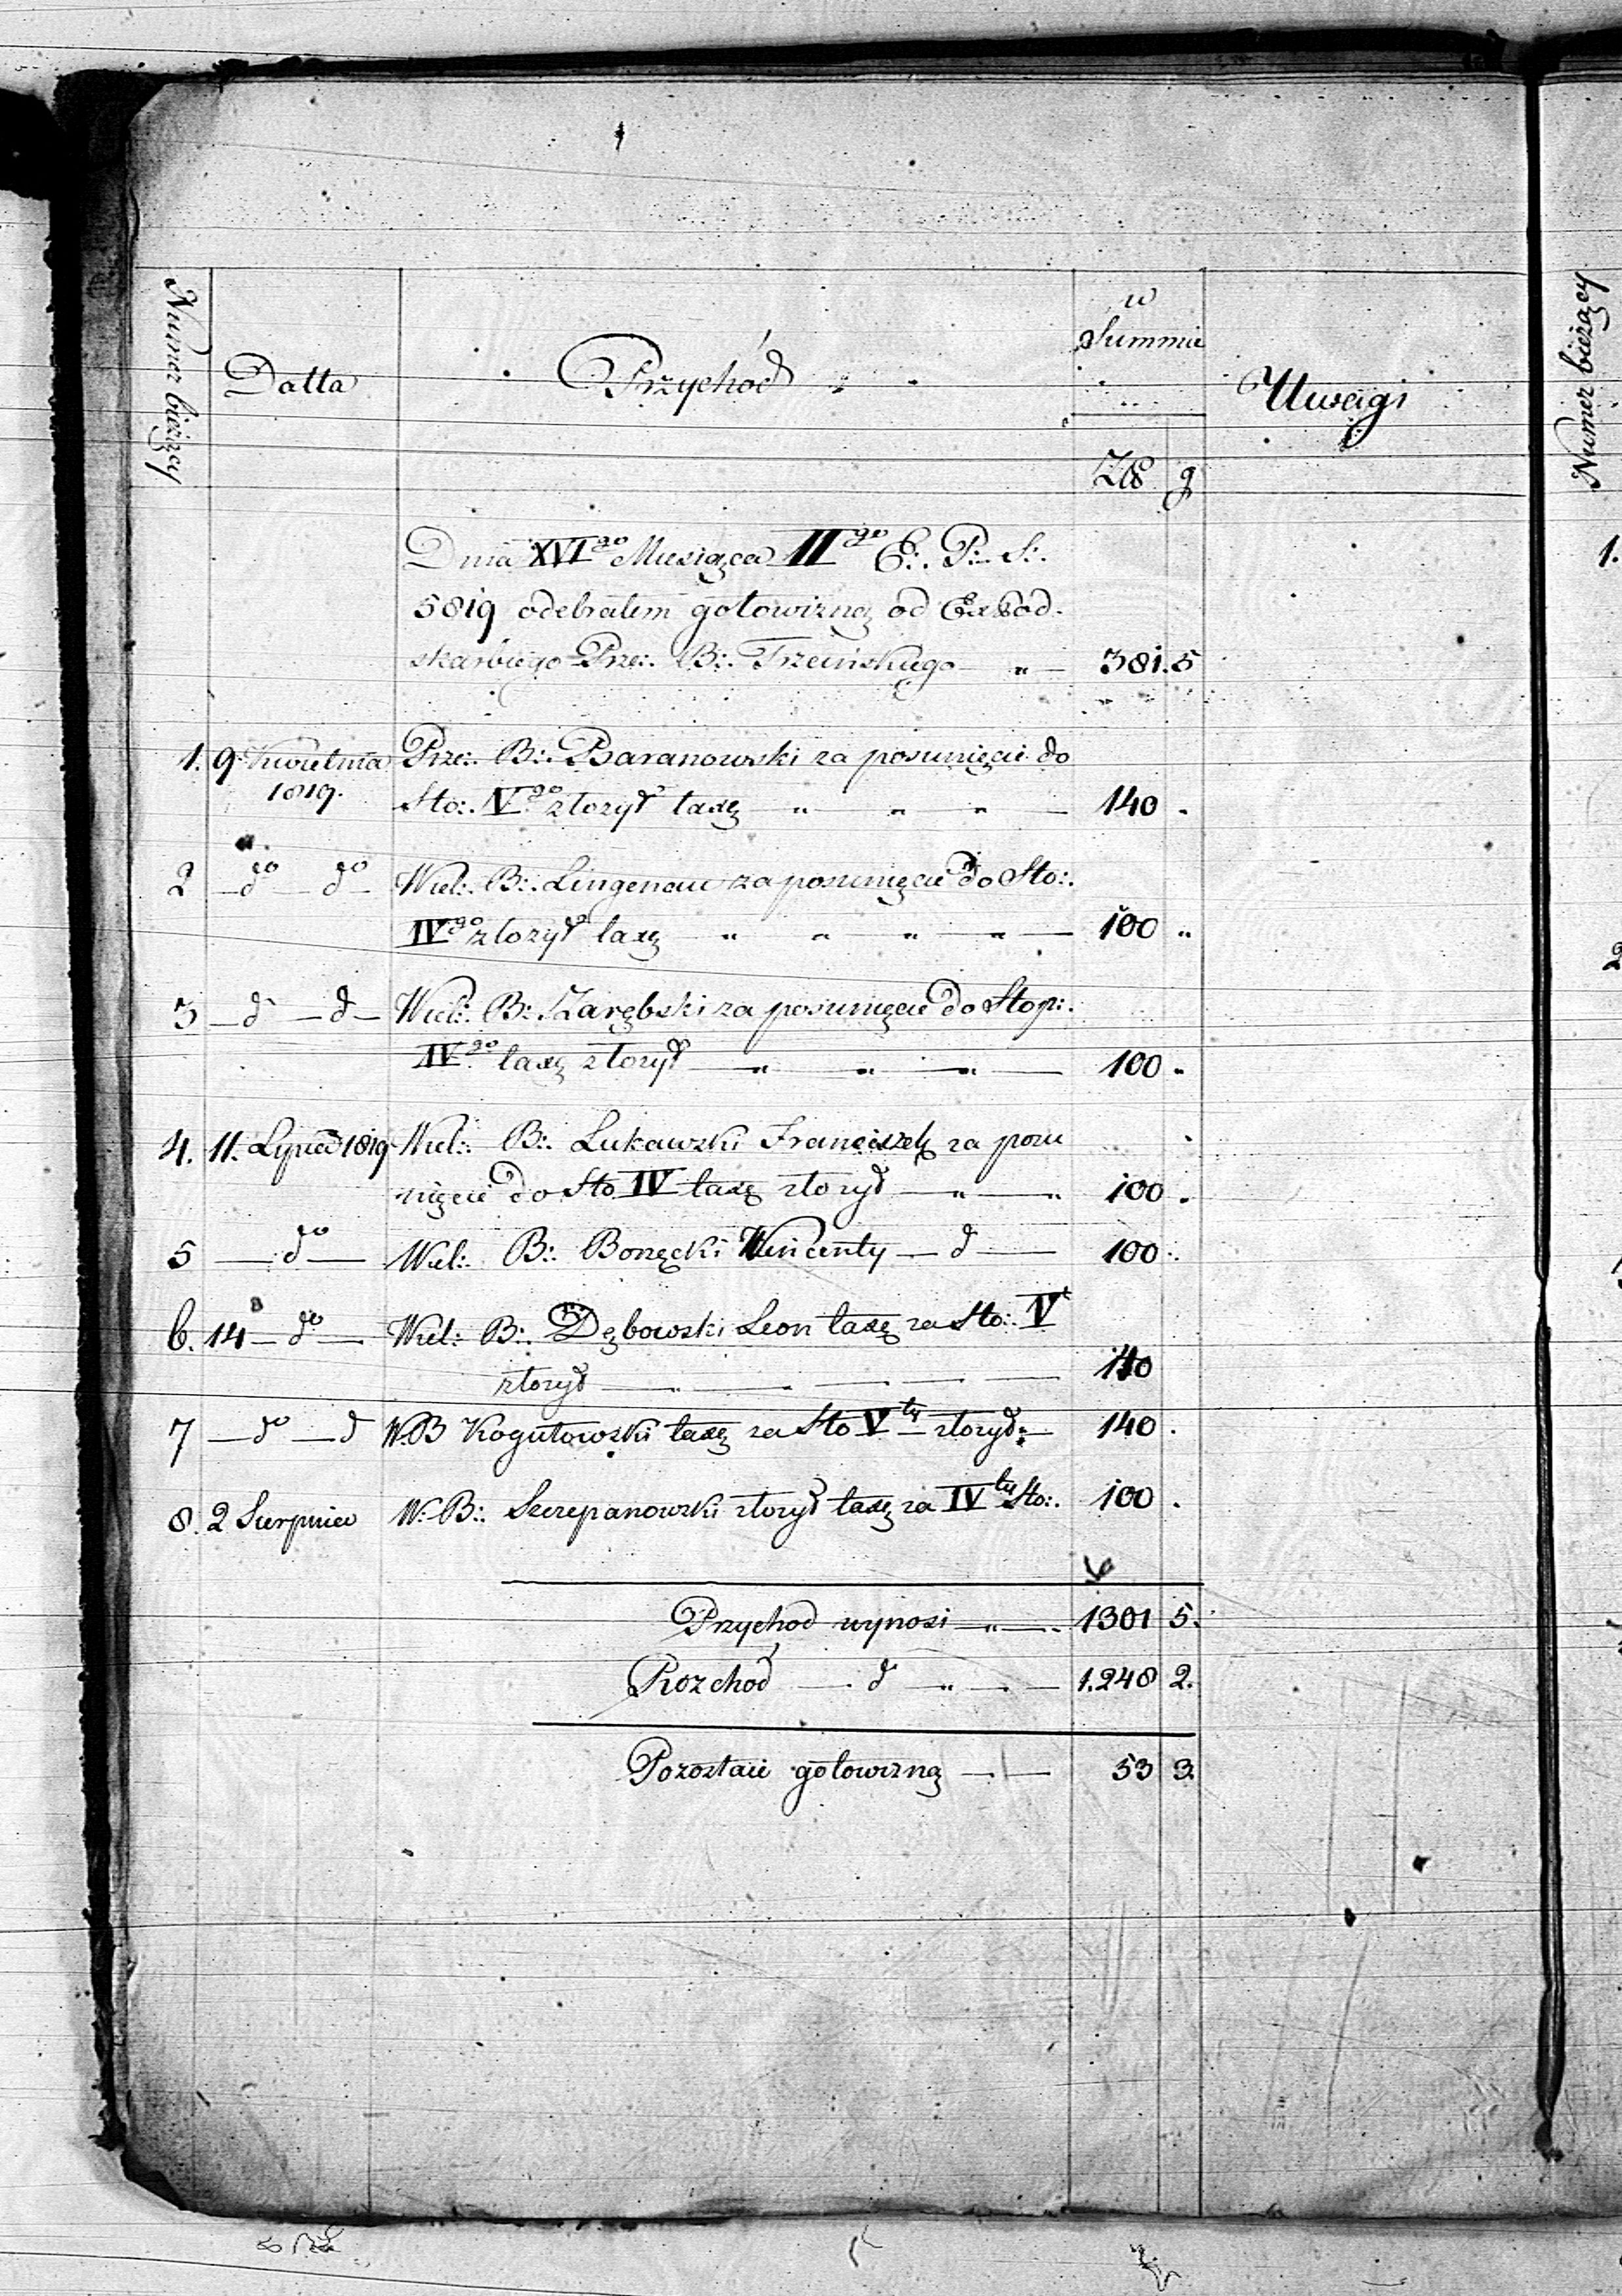 Numer bieżący
Datta
Przychód
w
Summie
Uwagi
Zł g
Dnia XVIgo Miesiąca IIgo E:. P:. S:.
5819 odebrałem gotowizną od Ex Pod-
skarbiego Prze:. B:. Trzcińskiego 381. 5
1. 9 Kwietnia Prze:. B:. Baranowski za posunięcie do
1819. Sto:. Vgo złozył taxę „ „ „ 140 .
2 do do Wiel:. B:. Lingenau za posunięcie do Sto:.
IVgo złozył taxę „ „ „ „ 100 „
3 d d Wiel:. B:. Zarębski za posunięcie do Stop:.
IVgo taxę złozył „ „ „ 100 „
4. 11. Lipca 1819 Wiel:. B:. Łukawski Franciszek za posu
nięcie do Sto IV taxę złozył „ „ 100 .
5 do Wiel:. B:. Bonęcki Wincenty d 100 .
6. 14 do Wiel:. B:. Dębowski Leon taxę za Sto:. Vt
złozył 140
7 do d W.B Kogutowski taxę za Sto Vty złozył 140 .
8. 2 Sierpnia W:. B:. Szczepanowski złozył taxę za IVty Sto:. 100 .
Przychod wynosi „ 1301 5.
Rozchod d „ 1.248 2.
Pozostaie gotowizną 53 3
Numer bieżący
1.
2